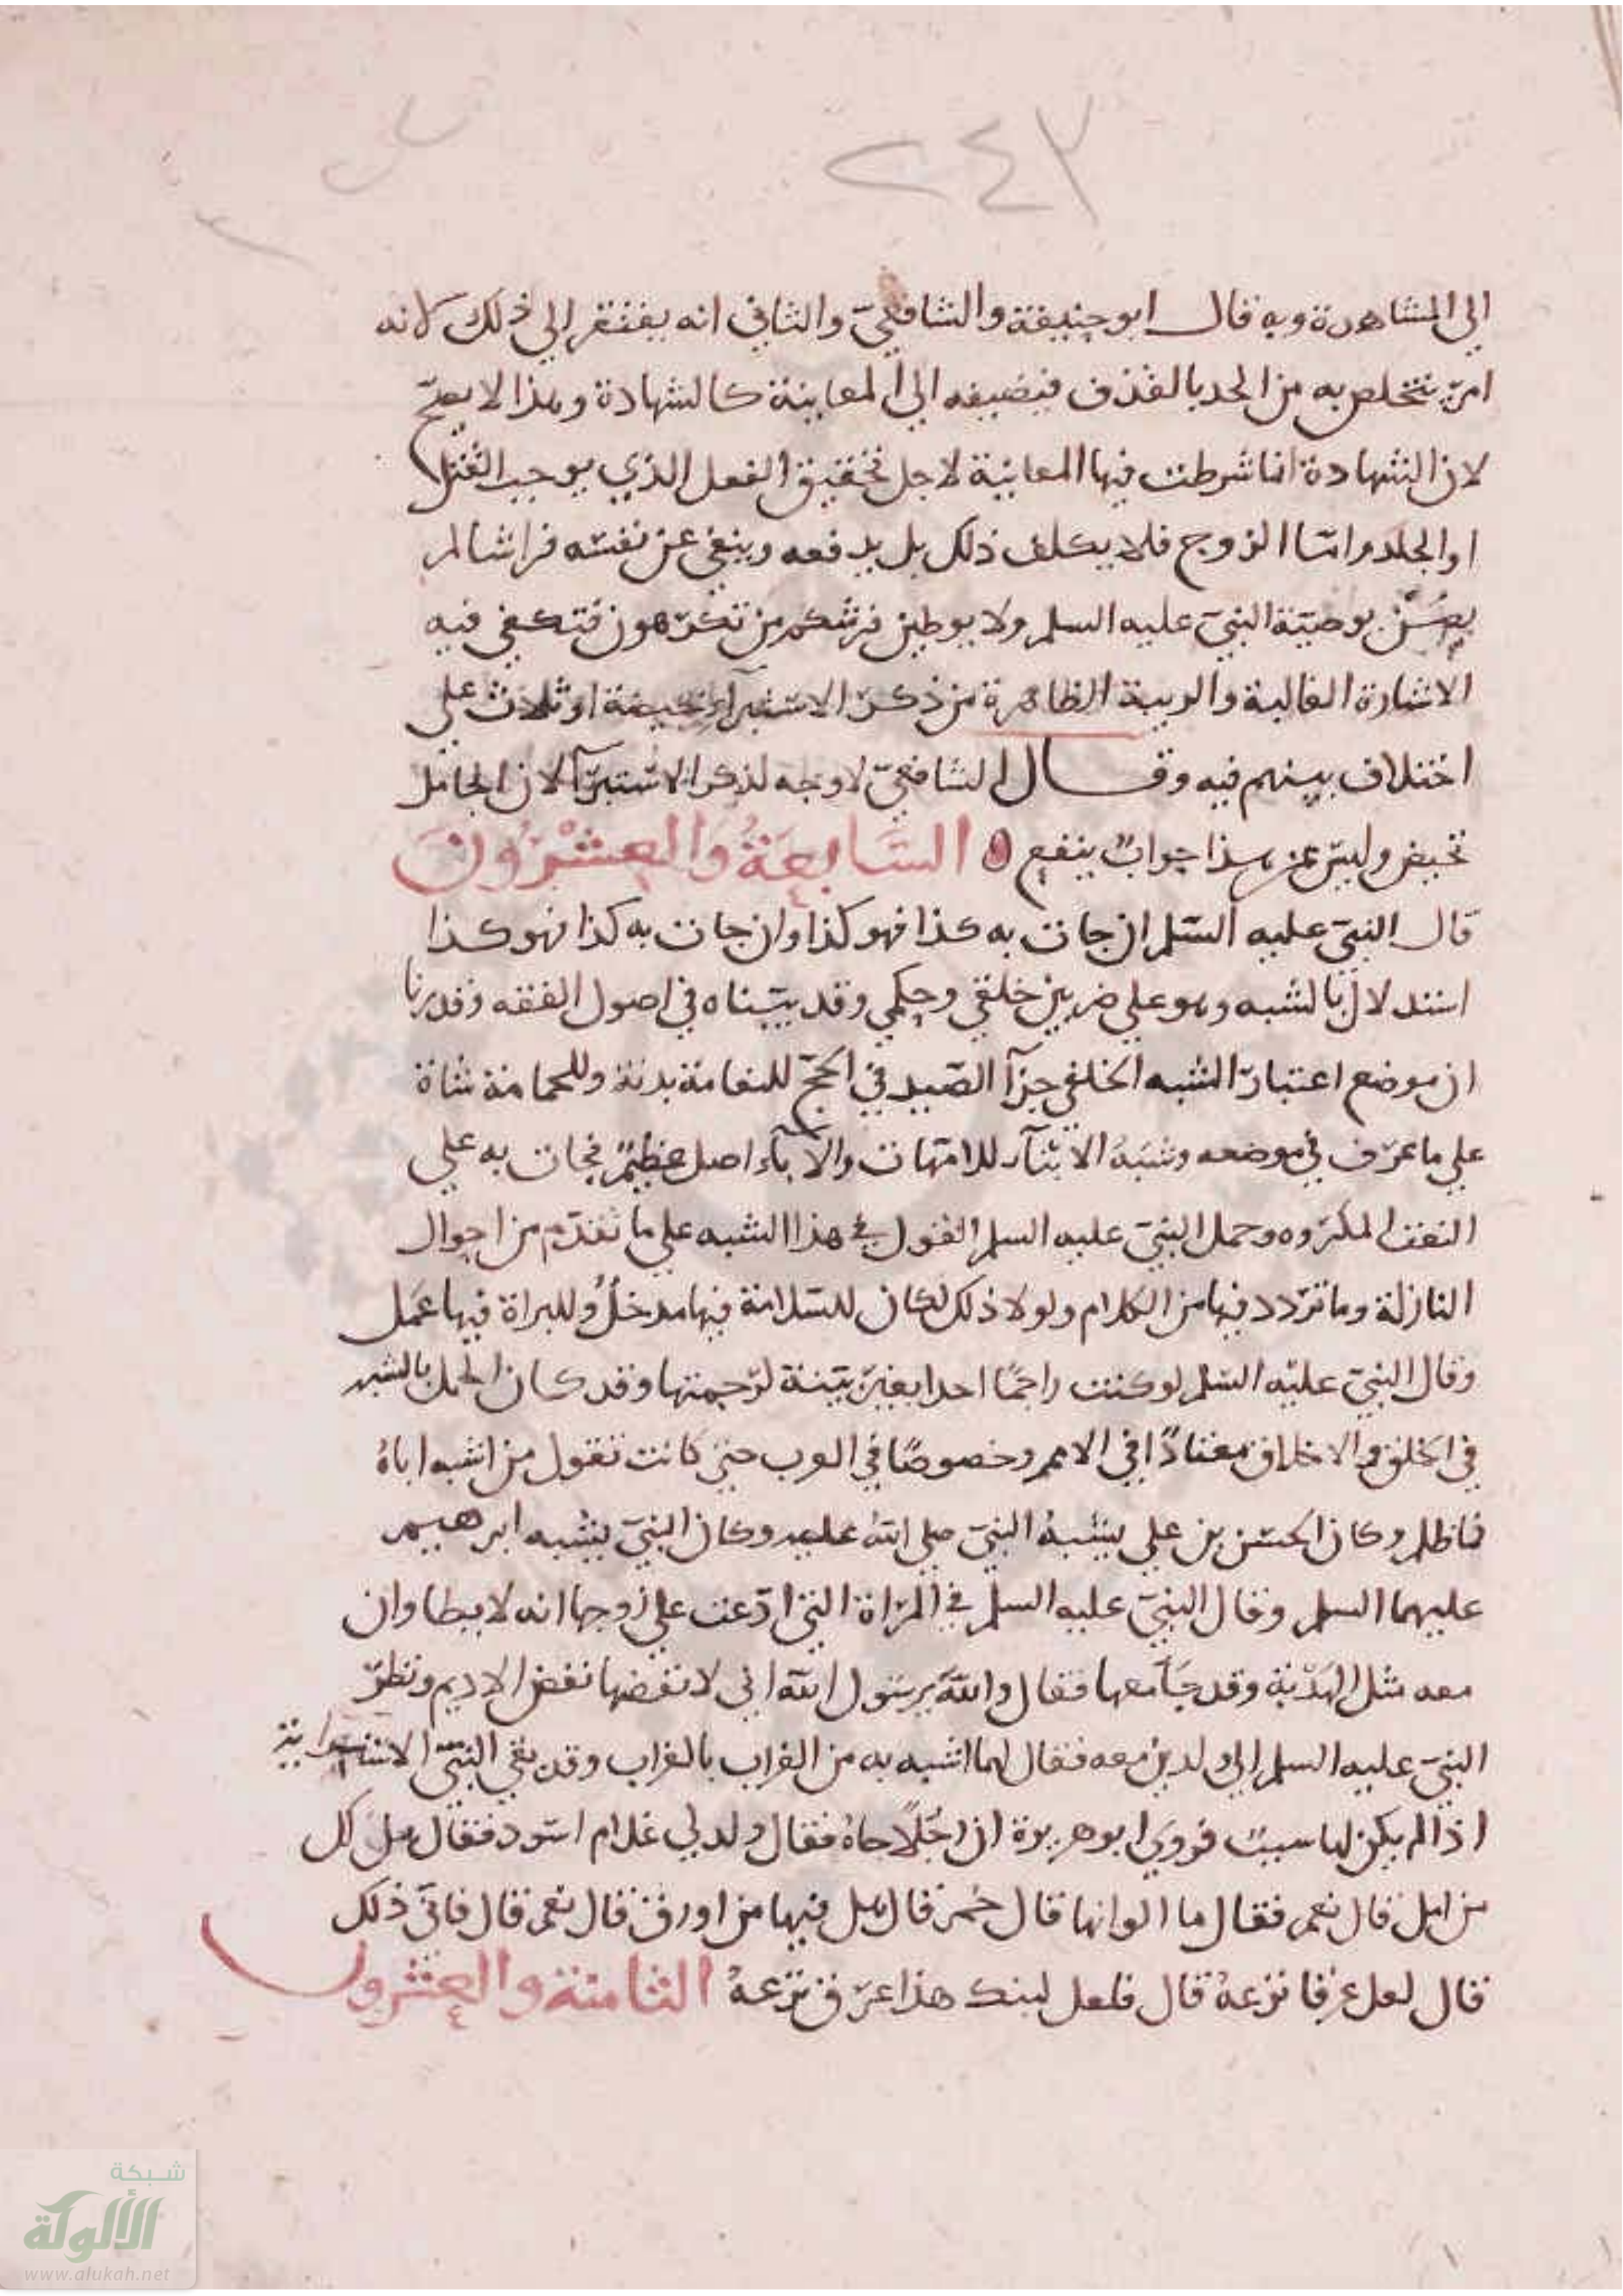 ٢٤٣
الي المشاهدة وبه قال ابو حنيفة والشافعيّ والثاني انه يفتقر الي ذلك لانه
امرٌ يتخلص به من الحد بالقذف فيضيفه الي المعاينة كالشهادة وهذا لا يصحّ
لان الشهادة انما شرطت فيها المعاينة لاجل تحقيق الفعل الذي يوجب القتل
او الجلد وامّا الزوج فلا يكلف ذلك بل يدفعه وينفي عن نفسه فراشا لم
يصُن بوصيّة النبيّ عليه السلم ولا يوطين فرشكم من تكرهون فتكفي فيه
الاشارة الغالبة والريبة الظاهرة من ذكر الاستبرآ بحيضة او ثلاث علي
اختلاف بينهم فيه وقال الشافعيّ لا وجه لذكر الاستبرآ لان الحامل
تحيض وليس عن هذا جوابٌ ينفع ۞ السَّابِعَةُ وَالعِشْرُونَ
قال النبيّ عليه السّلم ان جات به كذا فهو كذا وان جات به كذا فهو كذا
استدلالٌ بالشبه وهو علي ضربين خلقي وحكمي وقد بيّناه في اصول الفقه وقدرنا
ان موضع اعتبار الشبه الخلقي جزآ الصّيد في الحجّ للنعامة بدنة وللحمامة شاة
علي ما عرف في موضعه وشبَهُ الابنآء للامّهات والآبآء اصل عظيمٌ فجات به علي
النعت المكروه وحمل النبيّ عليه السلم القول في هذا الشبه علي ما تقدّم من احوال
النازلة وما تردد فيها من الكلام ولولا ذلك لكان للسّلامة فيها مدخلٌ وللبراة فيها عمَل
وقال النبيّ عليه السّلم لو كنت راجمًا احدا بغير بيّنة لرجمتها وقد كان بالشبه
في الخلق والاخلاق معتادًا في الامم وخصوصًا في العرب حتي كانت تقول من اشبه اباهُ
فما ظلم وكان الحسن بن علي يشبهُ النبيّ صلي اللهُ عليه وكان النبيّ يشبه ابرهيم
عليهما السلم وقال النبيّ عليه السلم في المراة التي ادّعت علي زوجها انه لا يطا وان
معه مثل الهدْبة وقد جَآ معها فقال والله يرسول الله اني لانفضها نفض الاديم ونظر
النبيّ عليه السلم الي ولدين معه فقال لهما اشبه به من الغراب بالغراب وقد نفي النبيّ الاسترابة
اذا لم يكن لها سببٌ فروي ابو هريرة ان رجُلًا جاهُ فقال ولد لي غلام اسود فقال هل لك
من ابل قال نعم فقال ما الوانها قال حُمر قال هل فيها من اورق قال نعم قال فاني ذلك
قال لعل عرقا نزعهُ قال فلعل ابنك هذا عرق نزعهُ الثامنة والعشرون
شبكة
الألوكة
www.alukah.net